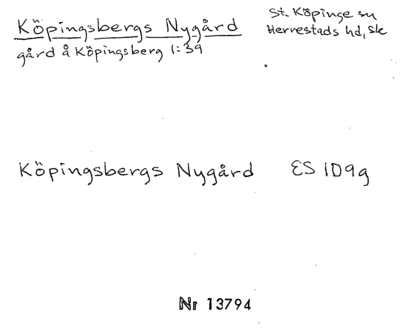 Köpingsbergs Nygård
gård å Köpingsberg 1:39
St. Köpinge sn
Herrestads hd, Sk
Köpingsbergs Nygård ES 1D9g
Nr 13794